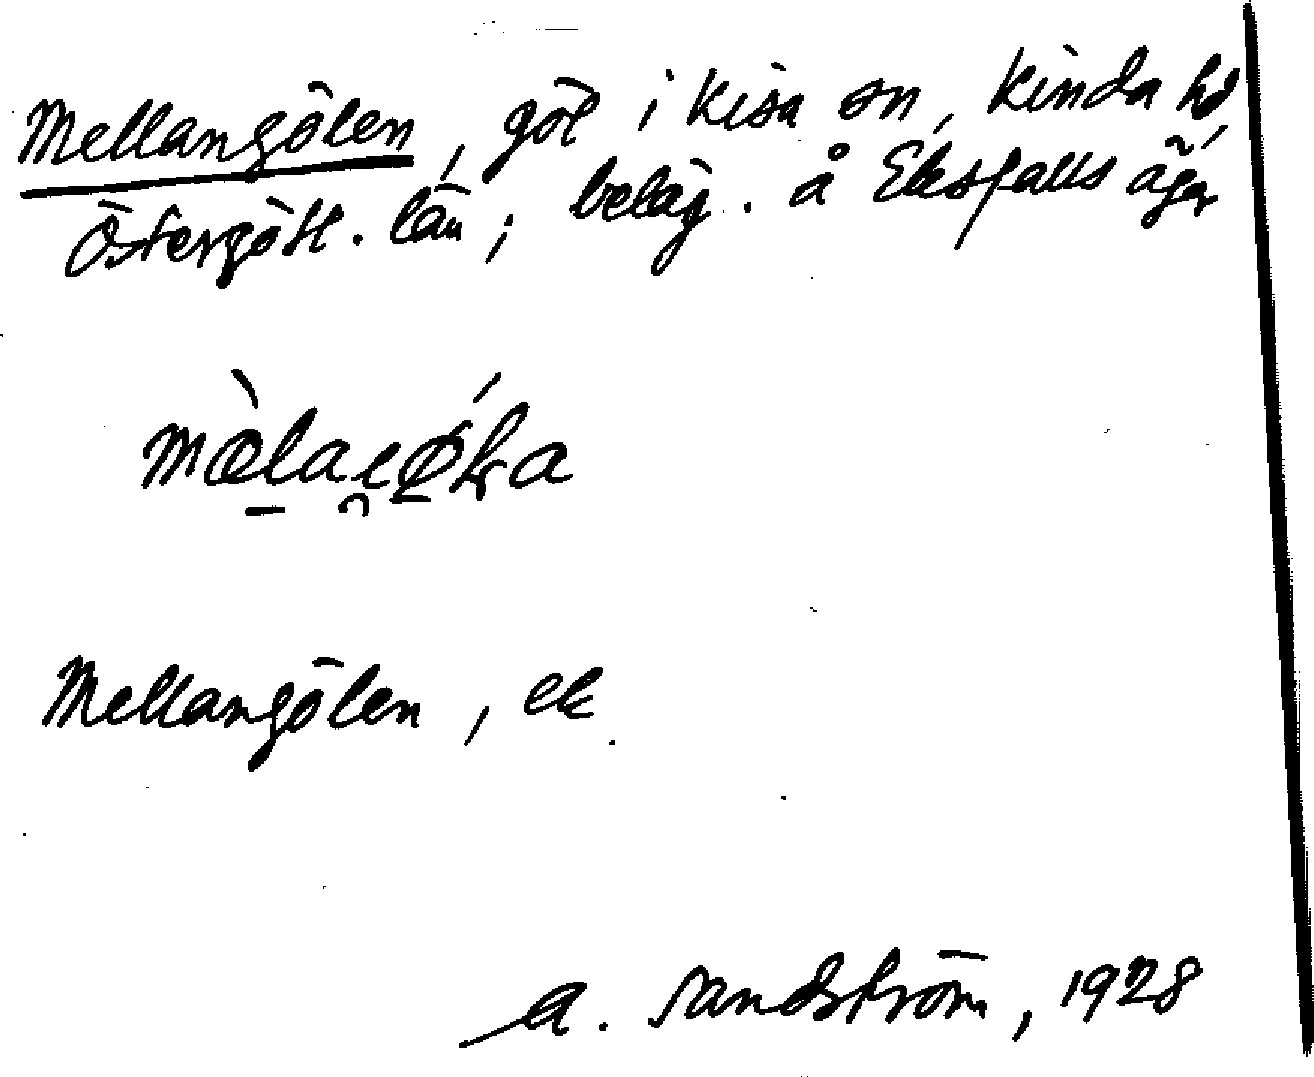 Mellangölen, göl i Kisa sn, Kinda hd,
Östergötl. län; beläg. å Eksfalls ägor
Mellangölen, ek
A. Sandström, 1928